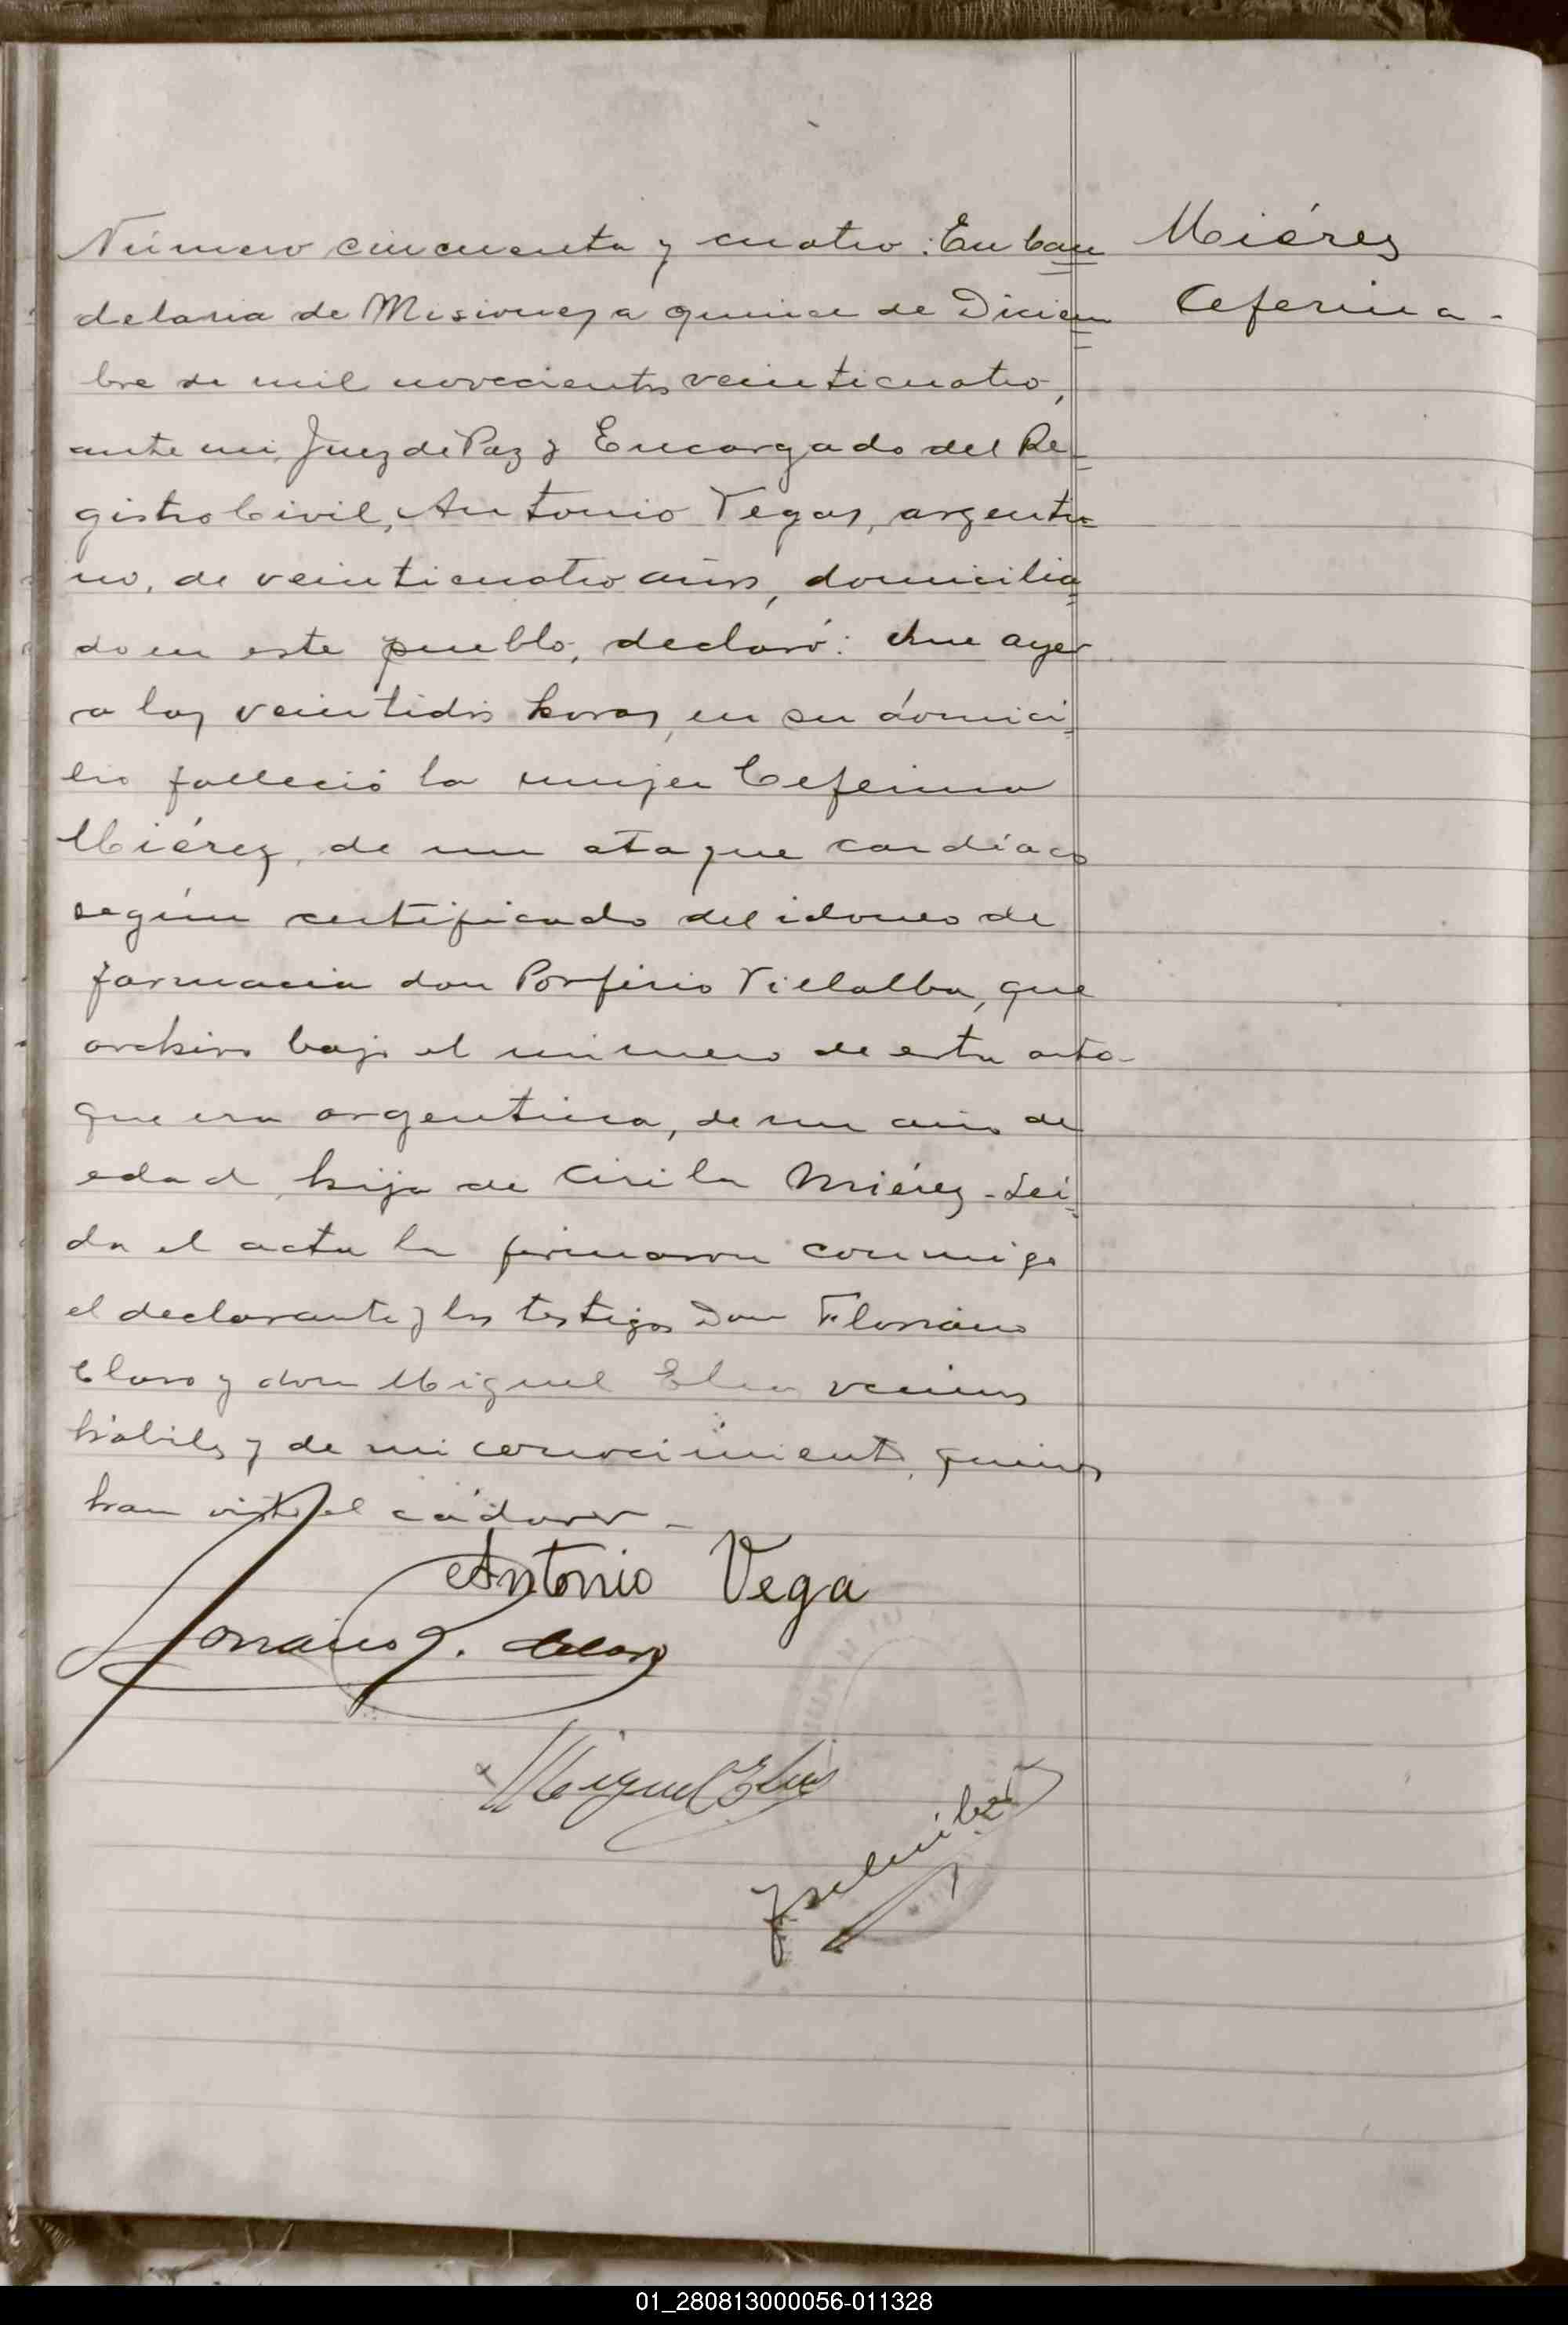 Número cincuenta y cuatro: En Can
delaria de Misiones, a quince de Diciem
bre de mil novecientos veinticuatro,
ante mi, Juez de Paz y Encargado del Re
gistro Civil, Antonio Vegas, argenti
no, de veinticuatro años, domicilia
do en este pueblo, declaró: Que ayer
a las veintidós horas, en su domici
lio falleció la mujer Ceferina
Miérez, de un ataque cardíaco
según certificado del idoneo de
farmacia don Porfirio Villalba, que
archivo bajo el número de esta acta-
que era argentina, de un año de
edad, hija de Cirila Miérez - Leí
da el acta la firmaron conmigo
el declarante y los testigos Don Floriano
Claro y don Miguel Elias vecinos
hábiles y de mi conocimiento, quienes
han visto el cadáver -
Miérez
Ceferina -
Antonio Vega
Claro
Miguel Elias
01_280813000056-011328